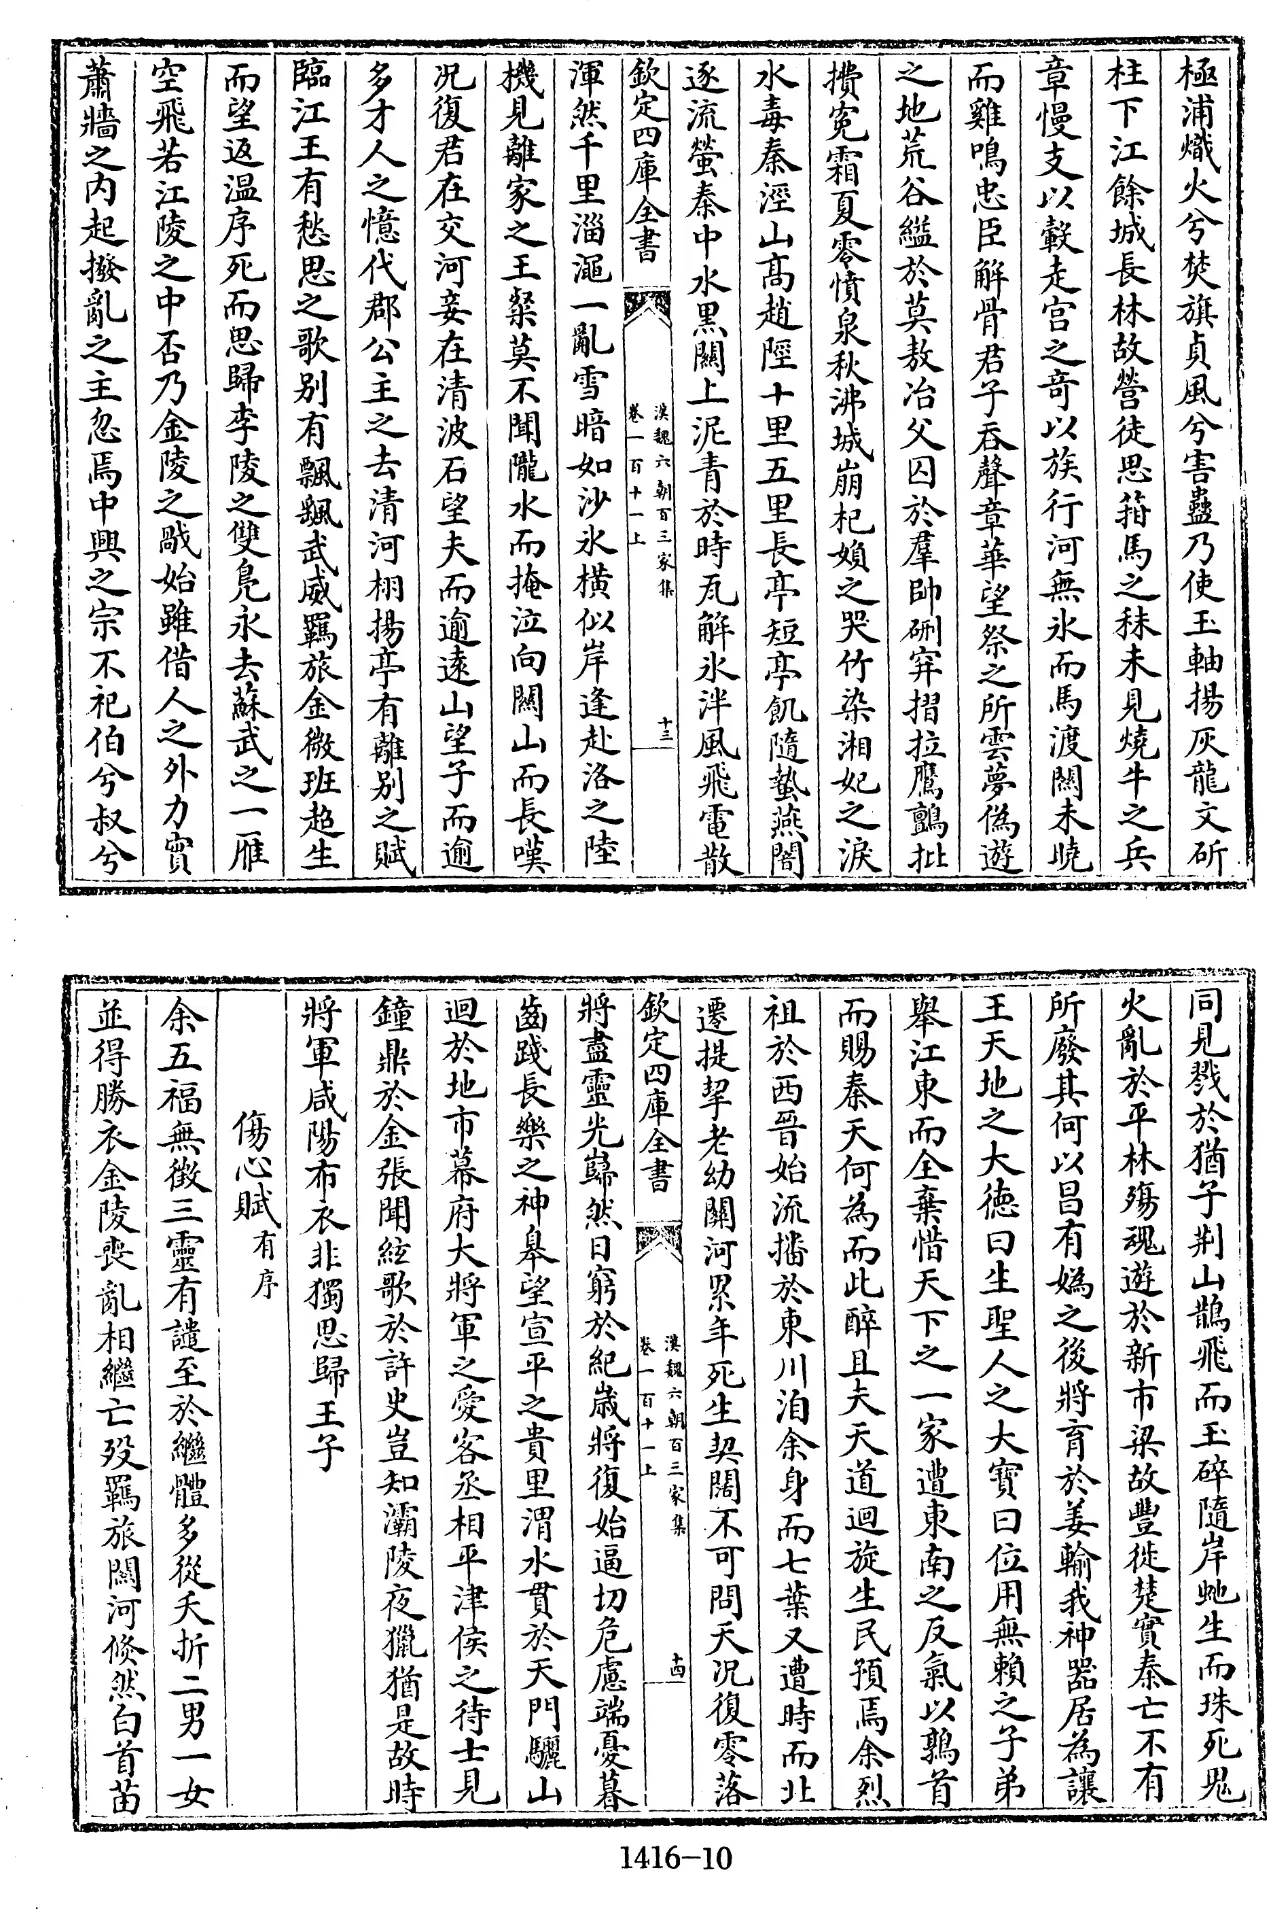 極浦熾火兮焚旗貞風兮害蠱乃使玉軸揚灰龍文斫
柱下江餘城長林故營徒思箝馬之秣未見燒牛之兵
章慢支以轂走宮之奇以族行河無氷而馬渡關未曉
而雞鳴忠臣解骨君子吞聲章華望祭之所雲夢偽遊
之地荒谷縊於莫敖冶父囚於羣帥硎穽摺拉鷹鸇批
㩌寃霜夏零憤泉秋沸城崩杞婦之哭竹染湘妃之淚
水毒秦涇山高趙陘十里五里長亭短亭飢隨蟄燕闇
逐流螢秦中水黒關上泥青於時瓦解氷泮風飛電散
欽定四庫全書
漢魏六朝百三家集
卷一百十一上
十三
渾然千里淄澠一亂雪暗如沙氷橫似岸逢赴洛之陸
機見離家之王粲莫不聞隴水而掩泣向關山而長嘆
况復君在交河妾在清波石望夫而逾逺山望子而逾
多才人之憶代郡公主之去清河栩揚亭有離别之賦
臨江王有愁思之歌别有飄颻武威羈旅金微班超生
而望返温序死而思歸李陵之雙鳬永去蘇武之一雁
空飛若江陵之中否乃金陵之禍始雖借人之外力實
蕭牆之内起撥亂之主忽焉中興之宗不祀伯兮叔兮
同見戮於猶子荆山鵲飛而玉碎隨岸虵生而珠死鬼
火亂於平林殤魂遊於新市梁故豐徙楚實秦亡不有
所廢其何以昌有媯之後將育於姜輸我神器居為讓
王天地之大徳曰生聖人之大寶曰位用無賴之子弟
舉江東而全棄惜天下之一家遭東南之反氣以鶉首
而賜秦天何為而此醉且夫天道迴旋生民預焉余烈
祖於西晉始流播於東川洎余身而七葉又遭時而北
遷提挈老幼關河累年死生契闊不可問天况復零落
欽定四庫全書
漢魏六朝百三家集
卷一百十一上
十四
將盡靈光巋然日窮於紀歳將復始逼切危慮端憂暮
齒踐長樂之神臯望宣平之貴里渭水貫於天門驪山
迴於地市幕府大將軍之愛客丞相平津侯之待士見
鐘鼎於金張聞絃歌於許史豈知灞陵夜獵猶是故時
將軍咸陽布衣非獨思歸王子
傷心賦有序
余五福無徵三靈有譴至於繼體多從夭折二男一女
並得勝衣金陵喪亂相繼亡殁羈旅關河倏然白首苗
1416-10